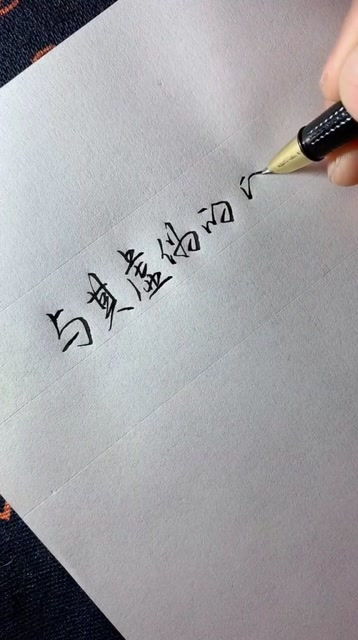 与其虚伪的